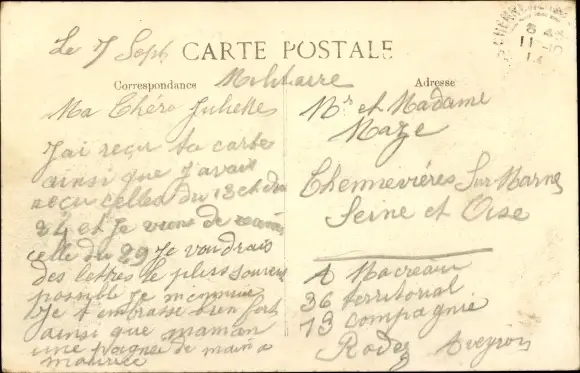 Le 7 Sept
CARTE POSTALE
Militaire
Correspondance
Ma Chére Juliette
J'ai reçu ta carte
ainsi que J'avais
reçu celles du 13 et du
24 et Je viens de
celle du 29 Je voudrais
des lettres le plus souvent
possible Je m'ennuie
Je t'embrasse bien fort
ainsi que maman
une poignée de main a
maurice
Adresse
Mr et Madame
Maze
Chennevières Sur Marne
Seine et Oise
A Macreau
36 territorial
13 compagnie
Rodez Aveyron